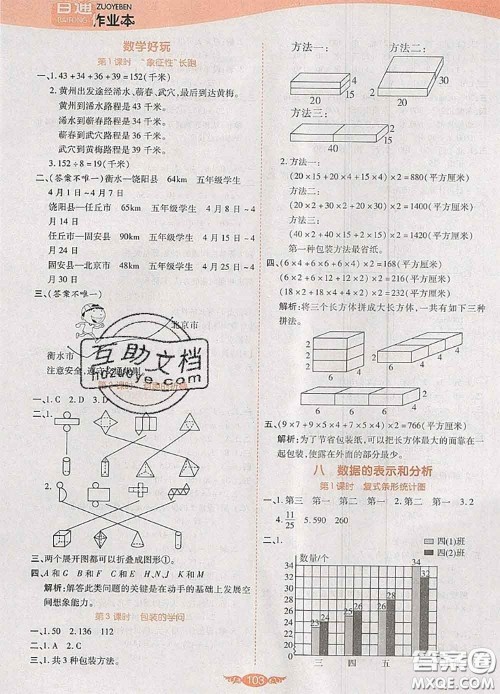 百通
ZUOYEBEN
作业本
数学好玩
第1课时 “象征性”长跑
一、1. 43+34+36+39=152(千米)
2. 黄州出发途经浠水、蕲春、武穴,最后到达黄梅。
黄州到浠水路程是 43 千米。
浠水到蕲春路程是 34 千米。
蕲春到武穴路程是 36 千米。
武穴到黄梅路程是 39 千米。
3. 152÷8=19(千米)
二、(答案不唯一)衡水—饶阳县 64km 五年级学生
4 月 1 日~4 月 7 日
饶阳县—任丘市 65km 五年级学生 4 月 8 日~4
月 14 日
任丘市—固安县 90km 五年级学生 4 月 15 日~4
月 24 日
固安县—北京市 48km 五年级学生 4 月 25 日~4
月 30 日
三、(答案不唯一)
北京市
衡水市
注意安全,
互助文档
Huzwoye.com
一、1. C 2. D 3. D
二、1.
2.
三、两个展开图都可以折叠成图形①。
四、A 和 G B 和 G
解析:解答此类问题的关键是在动手的基础上发展空
间想象能力。
第3课时 包装的学问
一、1. 50 2. 136 112
二、1. 共 3 种包装方法。
方法一:
方法二:
20
15
4
40
20
4
方法三:
30
15
2
2. 方法一:
(20×15+20×4+15×4)×2=880(平方厘米)
方法二:
(20×2+30×2+20×30)×2=1400(平方厘米)
方法三:
(15×2+40×2+40×15)×2=1420(平方厘米)
第一种包装方法最省纸。
四、(6×6+6×4+6×4)×2=168(平方厘米)
(6×12+6×2+12×2)×2=216(平方厘米)
(18×4+18×2+4×2)×2=232(平方厘米)
解析:将三个长方体拼成大长方体,一共有如下三种
拼法。
6
4
2
2
2
6
4
4
4
2
6
6
6
4
2
五、(9×7+9×5×4+7×5×4)×2=766(平方厘米)
解析:为了节省包装纸,可以把长方体最大的面靠在
一起包装,使露在外面的部分最少。
八 数据的表示和分析
第1课时 复式条形统计图
一、1. 第三 第一 第二 第一 第二 3. 2
4. 11/25 5. 590 260
二、1.
数量/个
四(1)班
四(2)班
34
32
28
26
25
25
24
23
三 四 五 六
103
答案圈
MXQE.COM